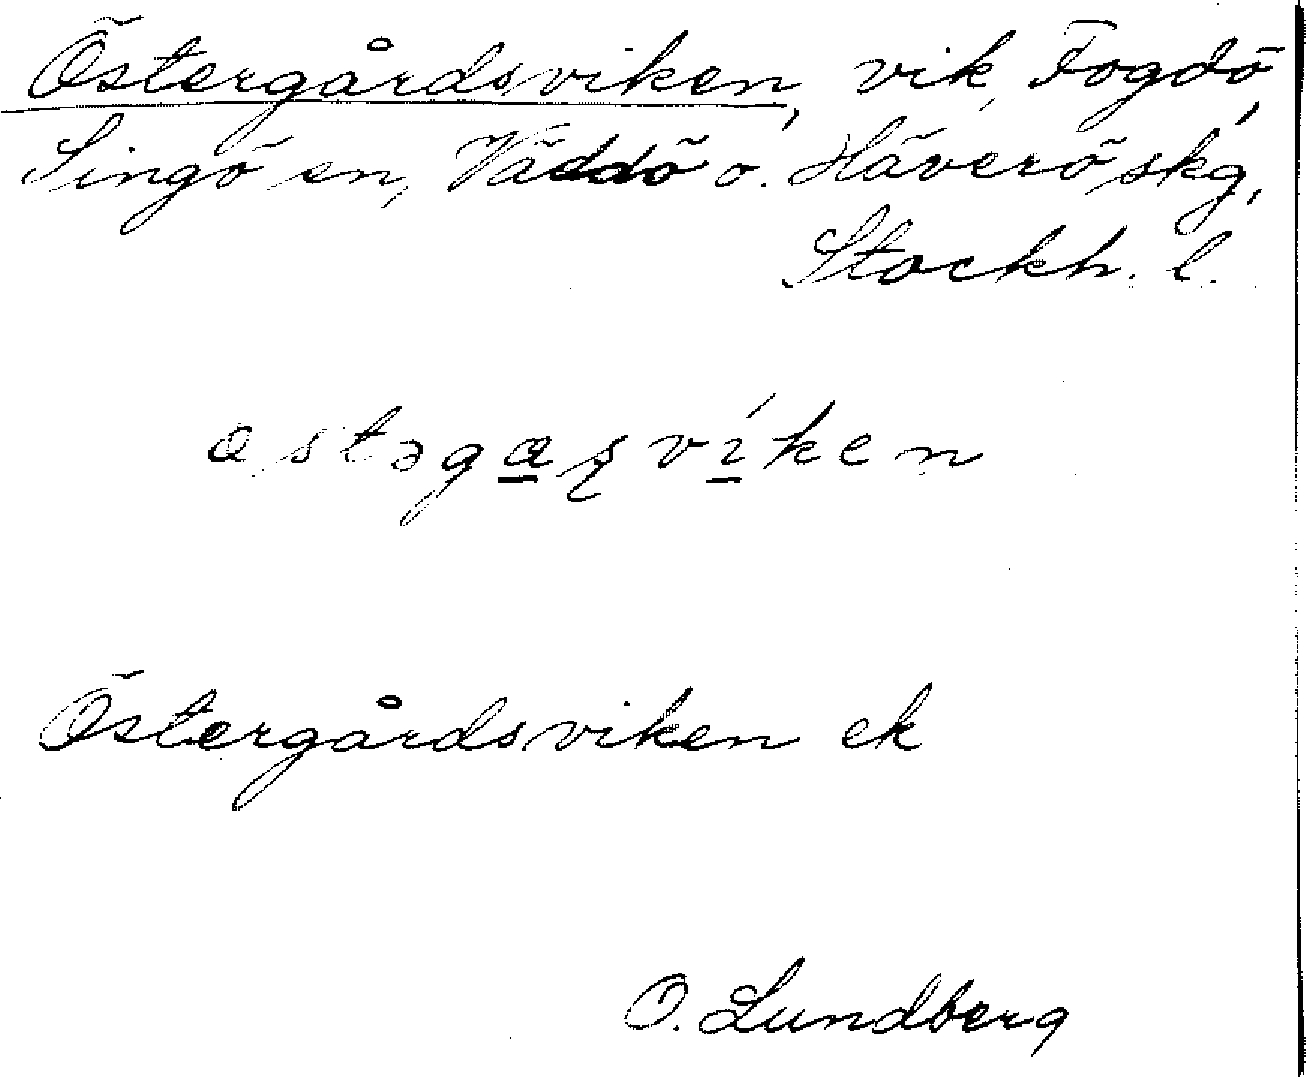 Östergårdsviken, vik, Fogdö,
Singö sn, Väddö o. Häverö skg,
Stockh. l.
Östergårdsviken ek
O. Lundberg